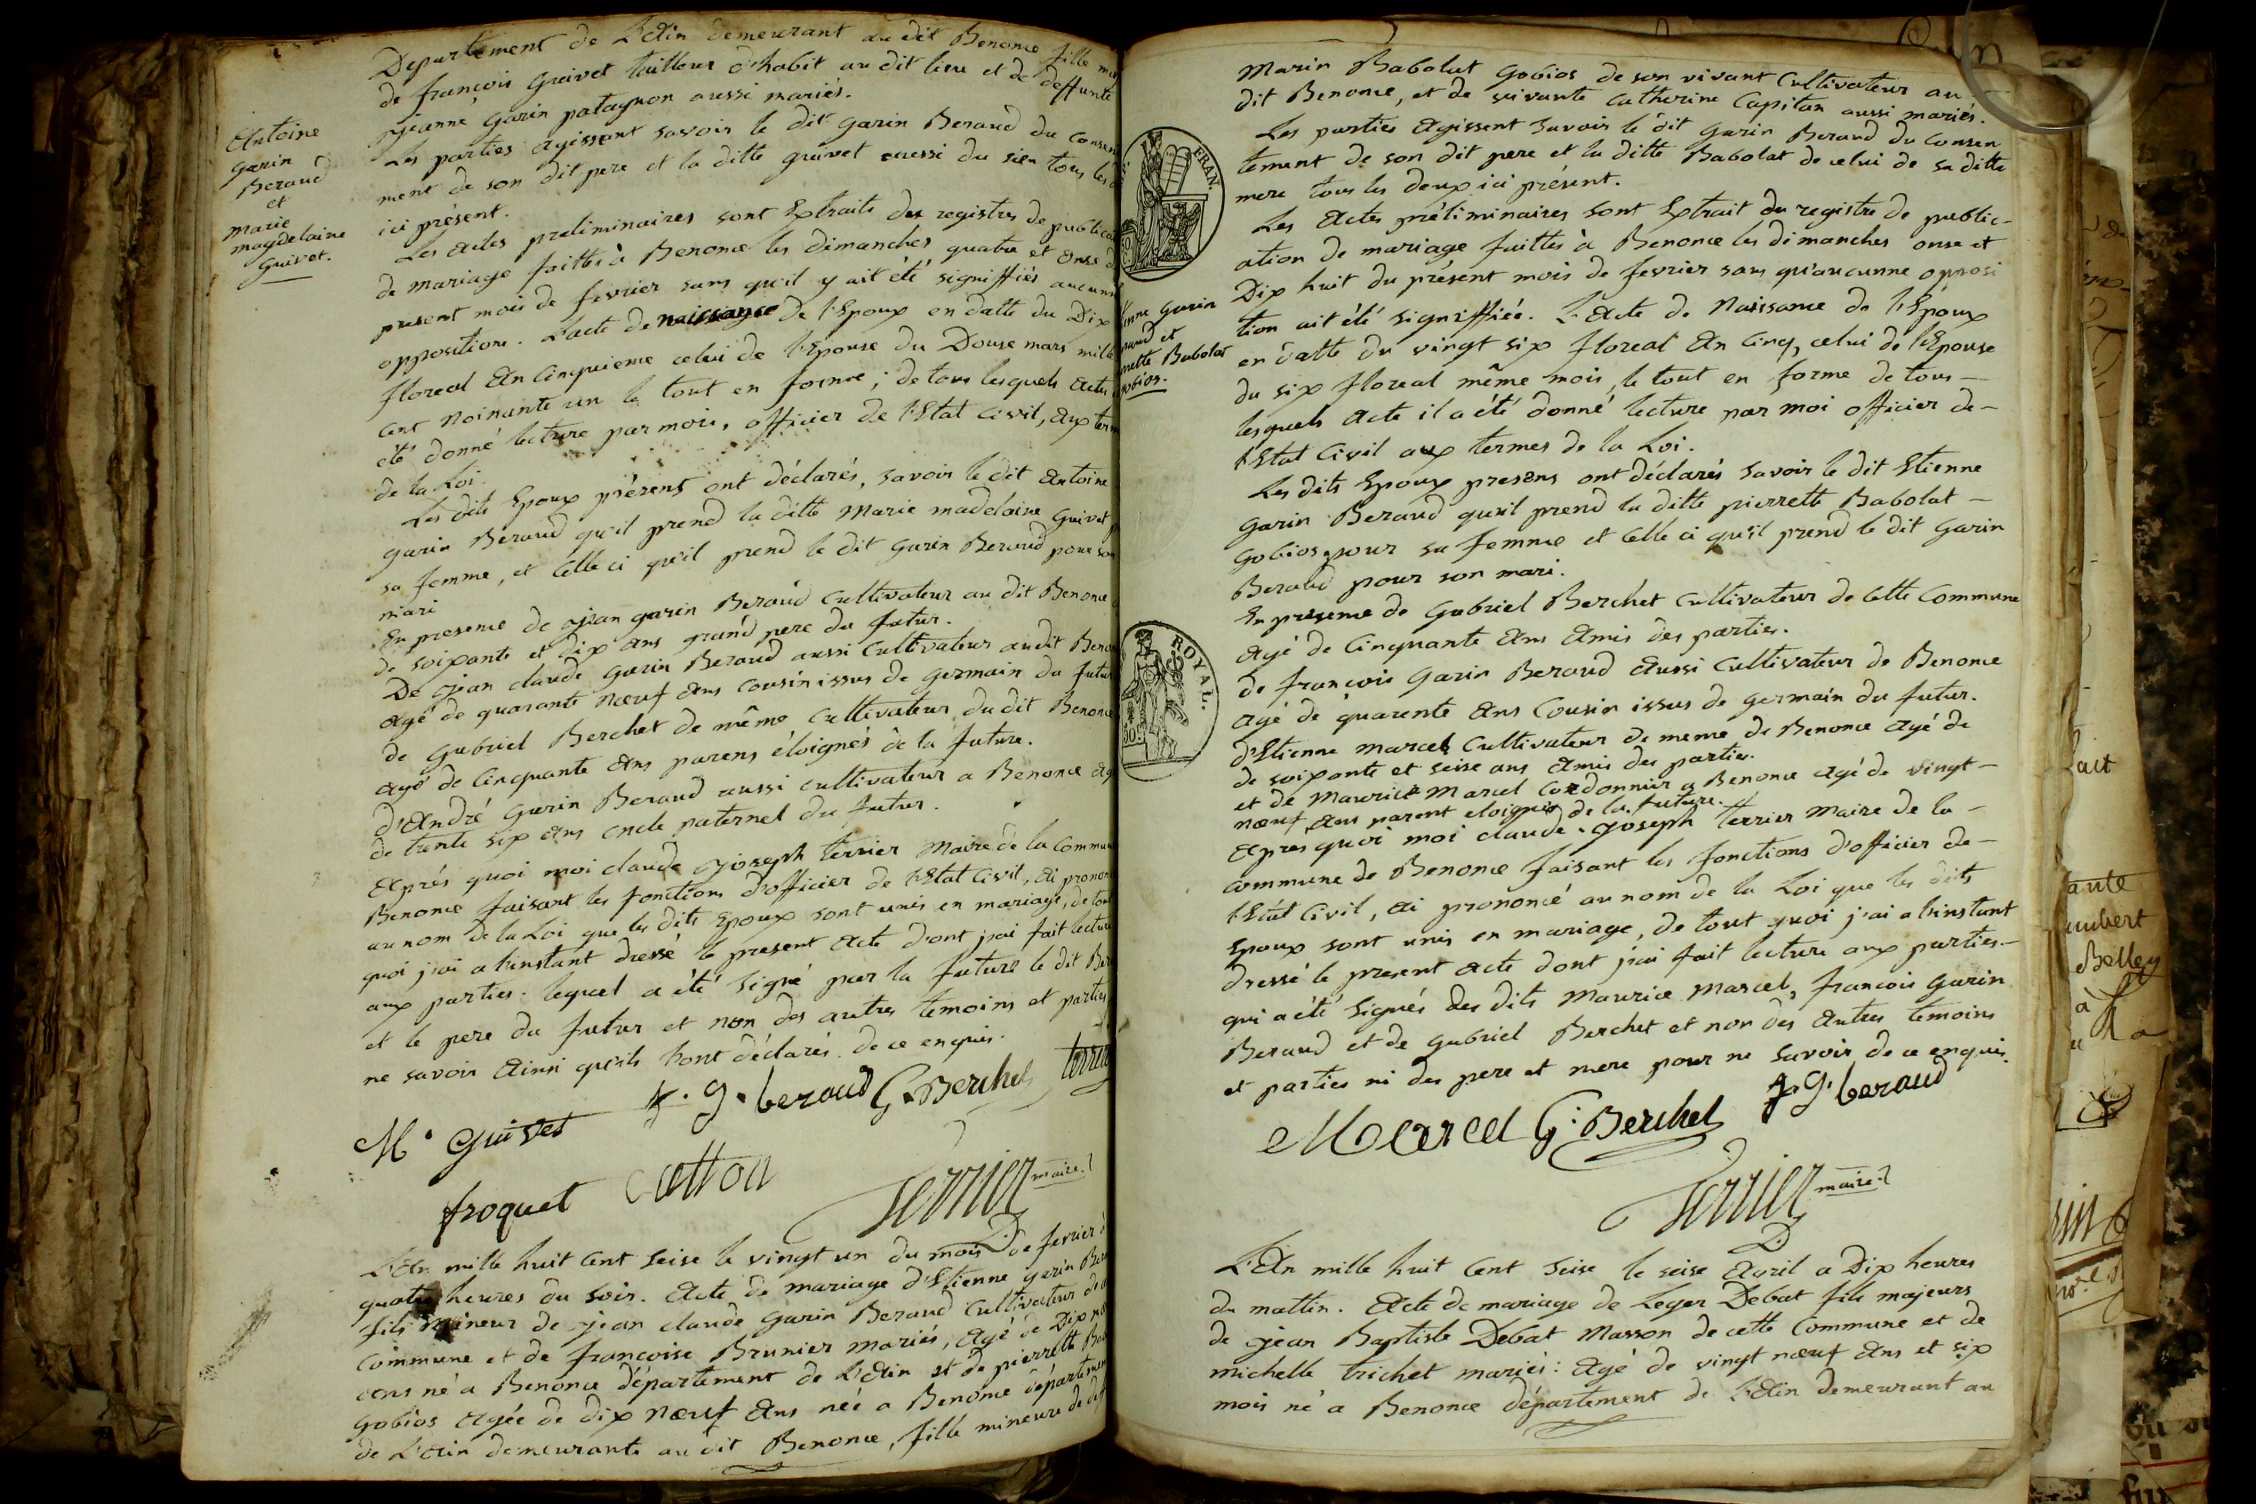 Departement de L'Ain demeurant au dit Benonce fille
de françois Guivet tailleur d'habit au dit lieu et de deffunte
jeanne Garin patagnon aussi mariés.
Antoine
garin
Beraud
et
marie
magdelaine
guivet.
Les parties agissant savoir le dit Garin Beraud du
ment de son dit pere et la ditte guivet aussi du sien tous les
ici présent.
Les actes preliminaires sont Extraits des registres de
de mariage faittes à Benonce les dimanches quatre et onse
present mois de fevrier sans qu'il y ait été signiffiés
opposition. L'acte de naissance de l'Epoux en datte du Dix
floreal An cinquieme celui de l'Epouse du Douse mars mille
cent noinante un le tout en forme; de tous lesquels actes
été donné lecture par moi, officier de l'Etat civil, aux
de la Loi.
Les dits Epoux présens ont déclarés, savoir le dit Antoine
garin Beraud qu'il prend la ditte Marie madelaine Guivet
sa femme, et celle ci qu'il prend le dit Garin Beraud pour son
mari
En presence de jean garin Beraud cultivateur au dit Benonce
de soixante et dix ans grand pere du futur.
De jean claude Garin Beraud aussi cultivateur audit
agé de quarante neuf ans cousin issus de germain du futur
de Gabriel Berchet de même cultivateur du dit Benonce
agé de cinquante ans parens éloignés de la future.
d'André Garin Beraud aussi cultivateur a Benonce
de trente six ans oncle paternel du futur.
Après quoi moi claude joseph terrier Maire de la
Benonce faisant les fonctions d'officier de l'Etat civil, ai
au nom de la Loi que les dits Epoux sont unis en mariage, de tout
quoi j'ai a l'instant dressé le present acte dont j'ai fait lecture
aux parties. lequel a été signé par la future le dit
et le pere du futur et non des autres temoins et parties
ne savoir ainsi qu'ils l'ont déclarés de ce enquis.
M. Guivet f. g. beraud G. Berchet
froquet Cotton Terrier maire
L'An mille huit cent seise le vingt un du mois de fevrier
quatre heures du soir. Acte de mariage d'Etienne garin
fils mineur de jean claude Garin Beraud cultivateur
commune et de françoise Brunier mariés, agé de Dix
ans né a Benonce département de L'Ain et de pierrette
gobios agée de dix neuf ans née a Benonce
de L'Ain demeurante au dit Benonce, fille mineure de
Marin Babolat Gobios de son vivant cultivateur au
dit Benonce, et de vivante catherine Capitan aussi mariés.
FRAN.
garin
et
Babolat
gobios.
Les parties agissent savoir le dit Garin Beraud du consen
tement de son dit pere et la ditte Babolat de celui de sa ditte
mere tous les deux ici présent.
Les Actes préliminaires sont Extrait du registre de public-
ation de mariage faittes à Benonce les dimanches onse et
Dix huit du présent mois de fevrier sans qu'aucunne opposi
tion ait été signiffiée. L'Acte de Naissance de l'Epoux
en datte du vingt six floreal An cinq, celui de l'Epouse
du six floreal même mois, le tout en forme de tous
lesquels acte il a été donné lecture par moi officier de
l'Etat civil aux termes de la Loi.
Les dits Epoux presens ont déclarés savoir le dit Etienne
Garin Beraud qu'il prend la ditte pierrette Babolat
Gobios pour sa femme et celle ci qu'il prend le dit Garin
Beraud pour son mari.
En presence de Gabriel Berchet cultivateur de cette Commune
Agé de cinquante ans amis des parties.
ROYAL.
de françois Garin Beraud Aussi cultivateur de Benonce
agé de quarente ans cousin issus de germain du futur.
d'Etienne marcel cultivateur de meme de Benonce agé de
de soixante et seise ans amis des parties.
et de Maurice Marcel Cordonnier a Benonce agé de vingt
neuf ans parent eloignés de la future.
Apres quoi moi claude joseph terrier Maire de la
commune de Benonce faisant les fonctions d'officier de
l'Etat civil, ai prononcé au nom de la Loi que les dits
Epoux sont unis en mariage, de tout quoi j'ai a l'instant
dressé le present acte dont j'ai fait lecture aux parties
qui a été signés des dits Maurice Marcel, francois Garin
Beraud et de Gabriel Berchet et non des autres temoins
et parties ni des pere et mere pour ne savoir de ce enquis.
Marcel G. Berchet f. g. beraud
Terrier maire
L'An mille huit cent seise le seise Avril a Dix heures
du mattin. Acte de mariage de Leger Debat fils majeurs
de jean Baptiste Debat Masson de cette commune et de
michelle trichet mariés: agé de vingt neuf ans et six
mois né a Benonce département de L'Ain demeurant au
Belley